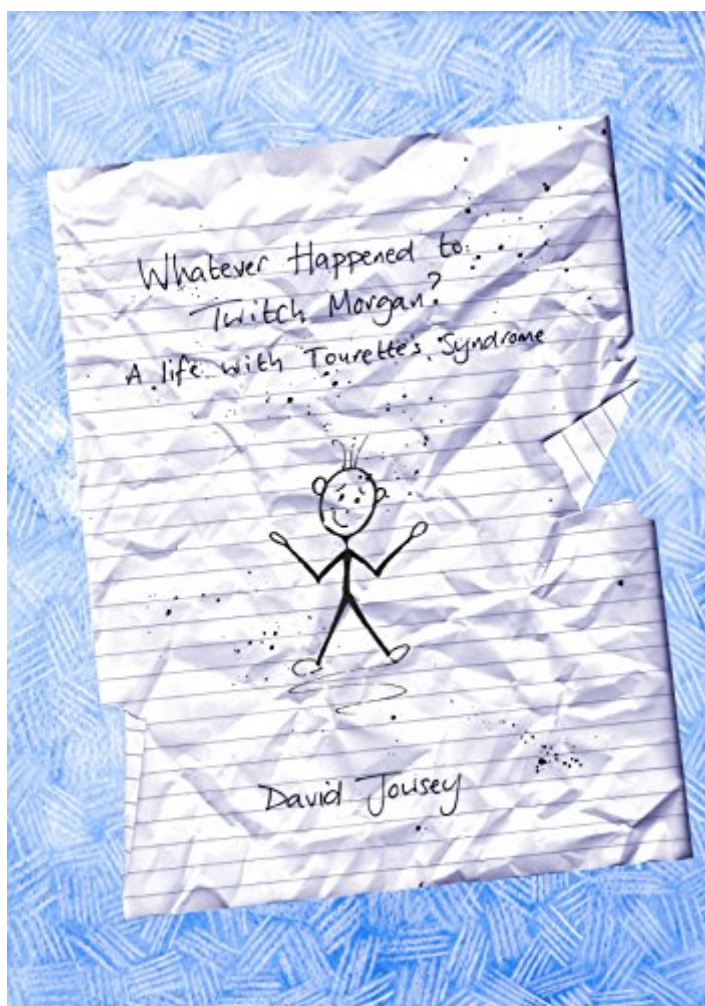 Whatever Happened to
Twitch Morgan?
A life with Tourette's Syndrome
David Tousey